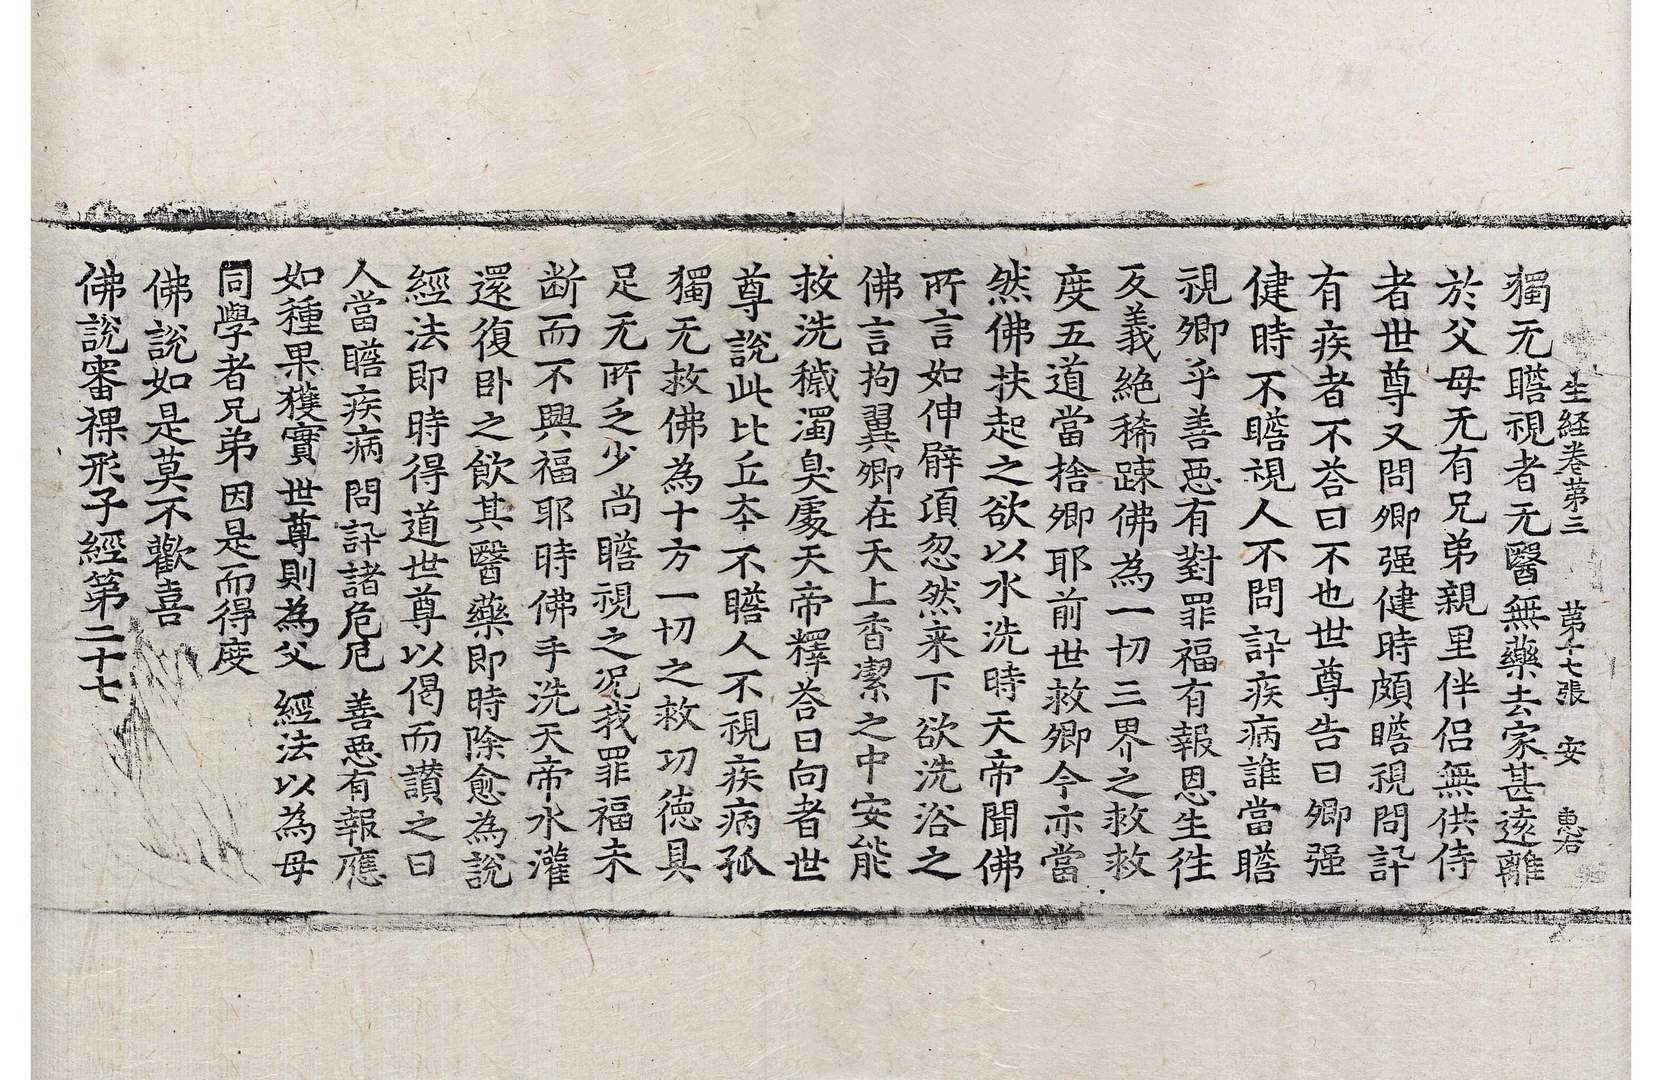 生経卷苐三 苐十七張 安 惠君
獨无瞻視者无醫無藥去家甚遠離
於父母无有兄弟親里伴侣無供侍
者世尊又問卿强健時頗瞻視問訊
有疾者不荅曰不也世尊告曰卿强
健時不瞻視人不問訊疾病誰當瞻
視卿乎善惡有對罪福有報恩生往
反義絶稀踈佛為一切三界之救救
度五道當捨卿耶前世救卿今亦當
然佛扶起之欲以水洗時天帝聞佛
所言如伸臂頃忽然来下欲洗浴之
佛言拘翼卿在天上香潔之中安能
救洗穢濁臭處天帝釋荅曰向者世
尊説此比丘夲不瞻人不視疾病孤
獨无救佛為十方一切之救功徳具
足无所乏少尚瞻視之况我罪福未
断而不興福耶時佛手洗天帝水灌
還復卧之飲其醫藥即時除愈為説
經法即時得道世尊以偈而讃之曰
人當瞻疾病問訊諸危厄 善惡有報應
如種果獲實世尊則為父 經法以為母
同學者兄弟因是而得度
佛説如是莫不歡喜
佛説審裸形子經第二十七